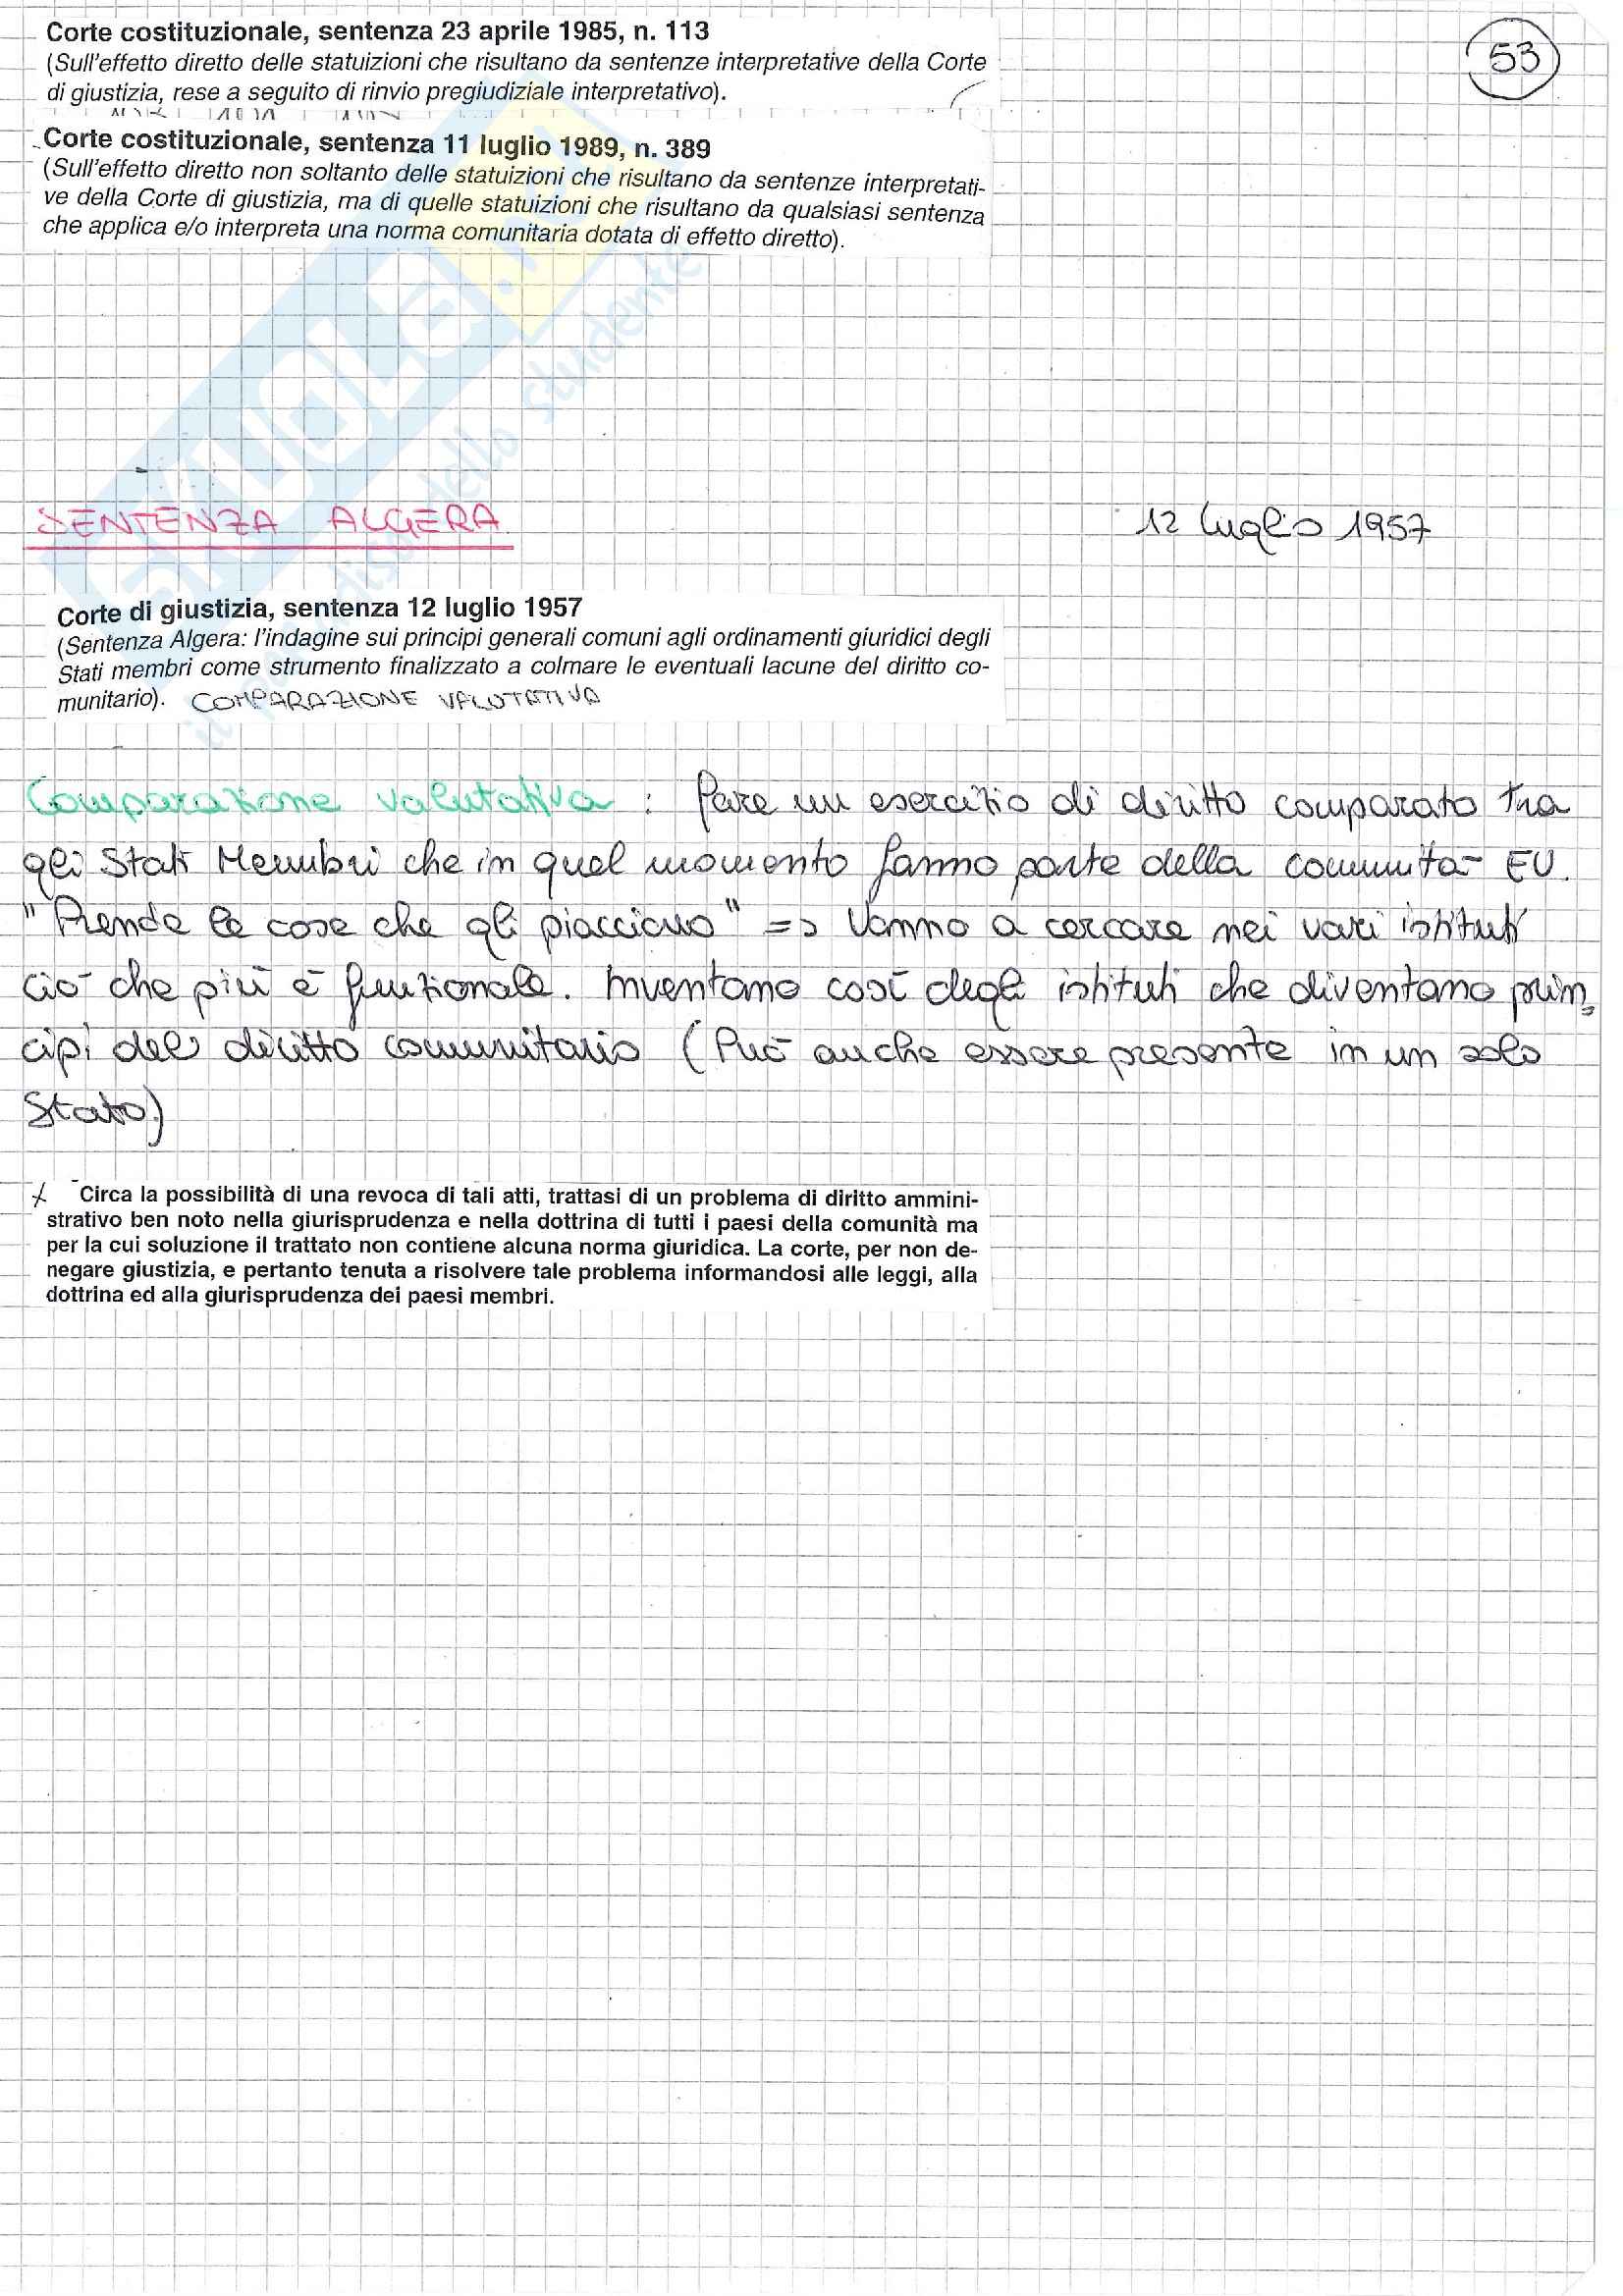 53
Corte costituzionale, sentenza 23 aprile 1985, n. 113
(Sull'effetto diretto delle statuizioni che risultano da sentenze interpretative della Corte
di giustizia, rese a seguito di rinvio pregiudiziale interpretativo).
Corte costituzionale, sentenza 11 luglio 1989, n. 389
(Sull'effetto diretto non soltanto delle statuizioni che risultano da sentenze interpretati-
ve della Corte di giustizia, ma di quelle statuizioni che risultano da qualsiasi sentenza
che applica e/o interpreta una norma comunitaria dotata di effetto diretto).
SENTENZA ALGERA 12 luglio 1957
Corte di giustizia, sentenza 12 luglio 1957
(Sentenza Algera: l'indagine sui principi generali comuni agli ordinamenti giuridici degli
Stati membri come strumento finalizzato a colmare le eventuali lacune del diritto co-
munitario). COMPARAZIONE VALUTATIVA
Comparazione valutativa : fare un esercizio di diritto comparato tra
gli Stati Membri che in quel momento fanno parte della comunità EU.
"Prende le cose che gli piacciono" => Vanno a cercare nei vari istituti
ciò che più è funzionale. Inventano così degli istituti che diventano prin=
cipi del diritto comunitario (Può anche essere presente in un solo
Stato)
Circa la possibilità di una revoca di tali atti, trattasi di un problema di diritto ammini-
strativo ben noto nella giurisprudenza e nella dottrina di tutti i paesi della comunità ma
per la cui soluzione il trattato non contiene alcuna norma giuridica. La corte, per non de-
negare giustizia, e pertanto tenuta a risolvere tale problema informandosi alle leggi, alla
dottrina ed alla giurisprudenza dei paesi membri.